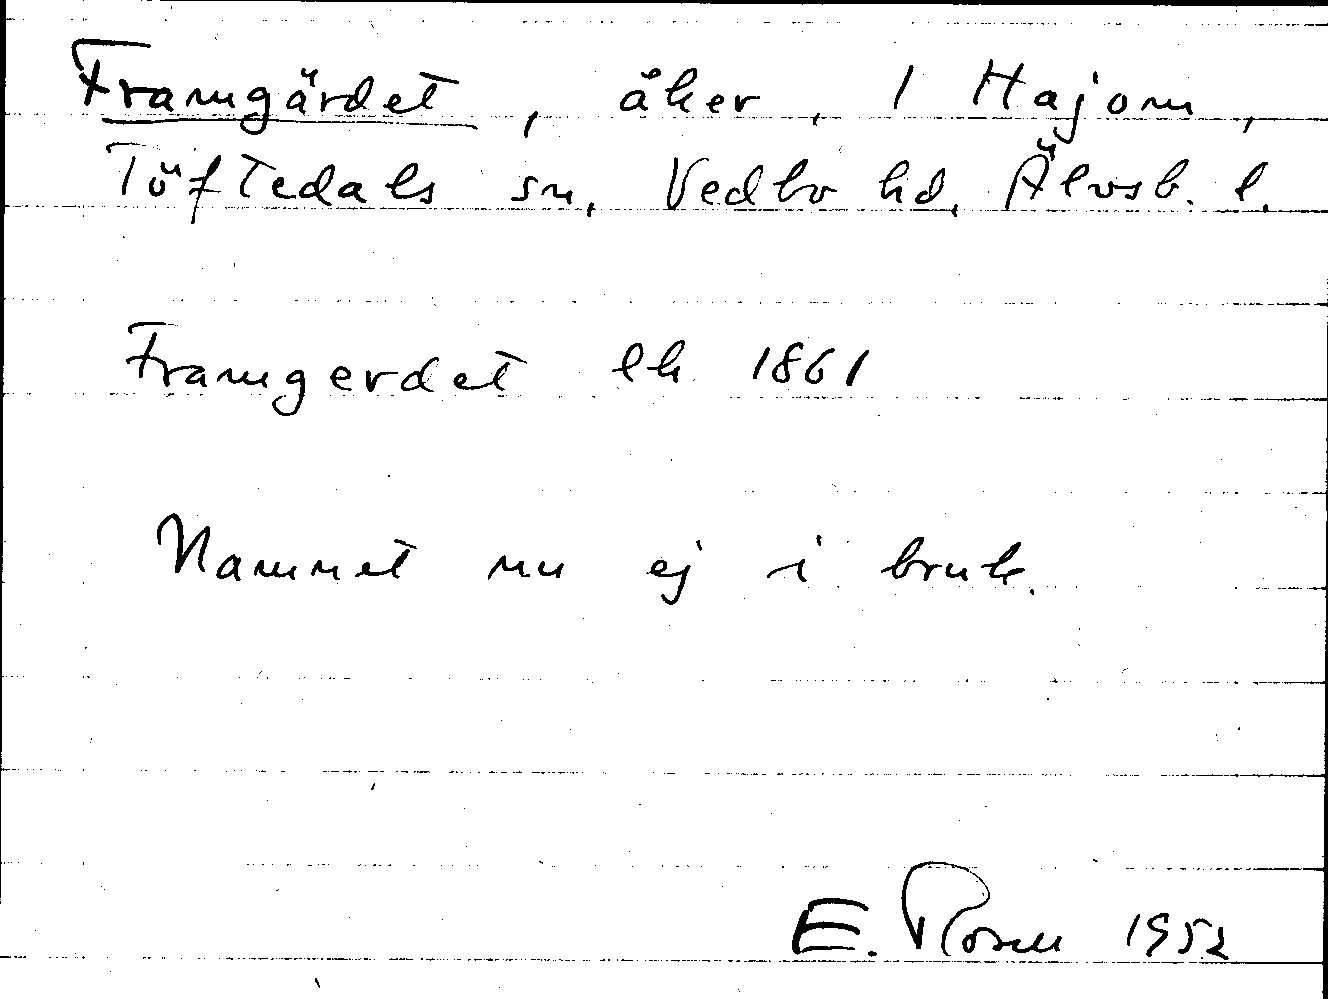 Framgärdet, åker, 1 Hajom,
Töftedals sn, Vedbo hd, Älvsb. l.
Framgerdet lk 1861
Namnet nu ej i bruk.
E. Rosell 1952